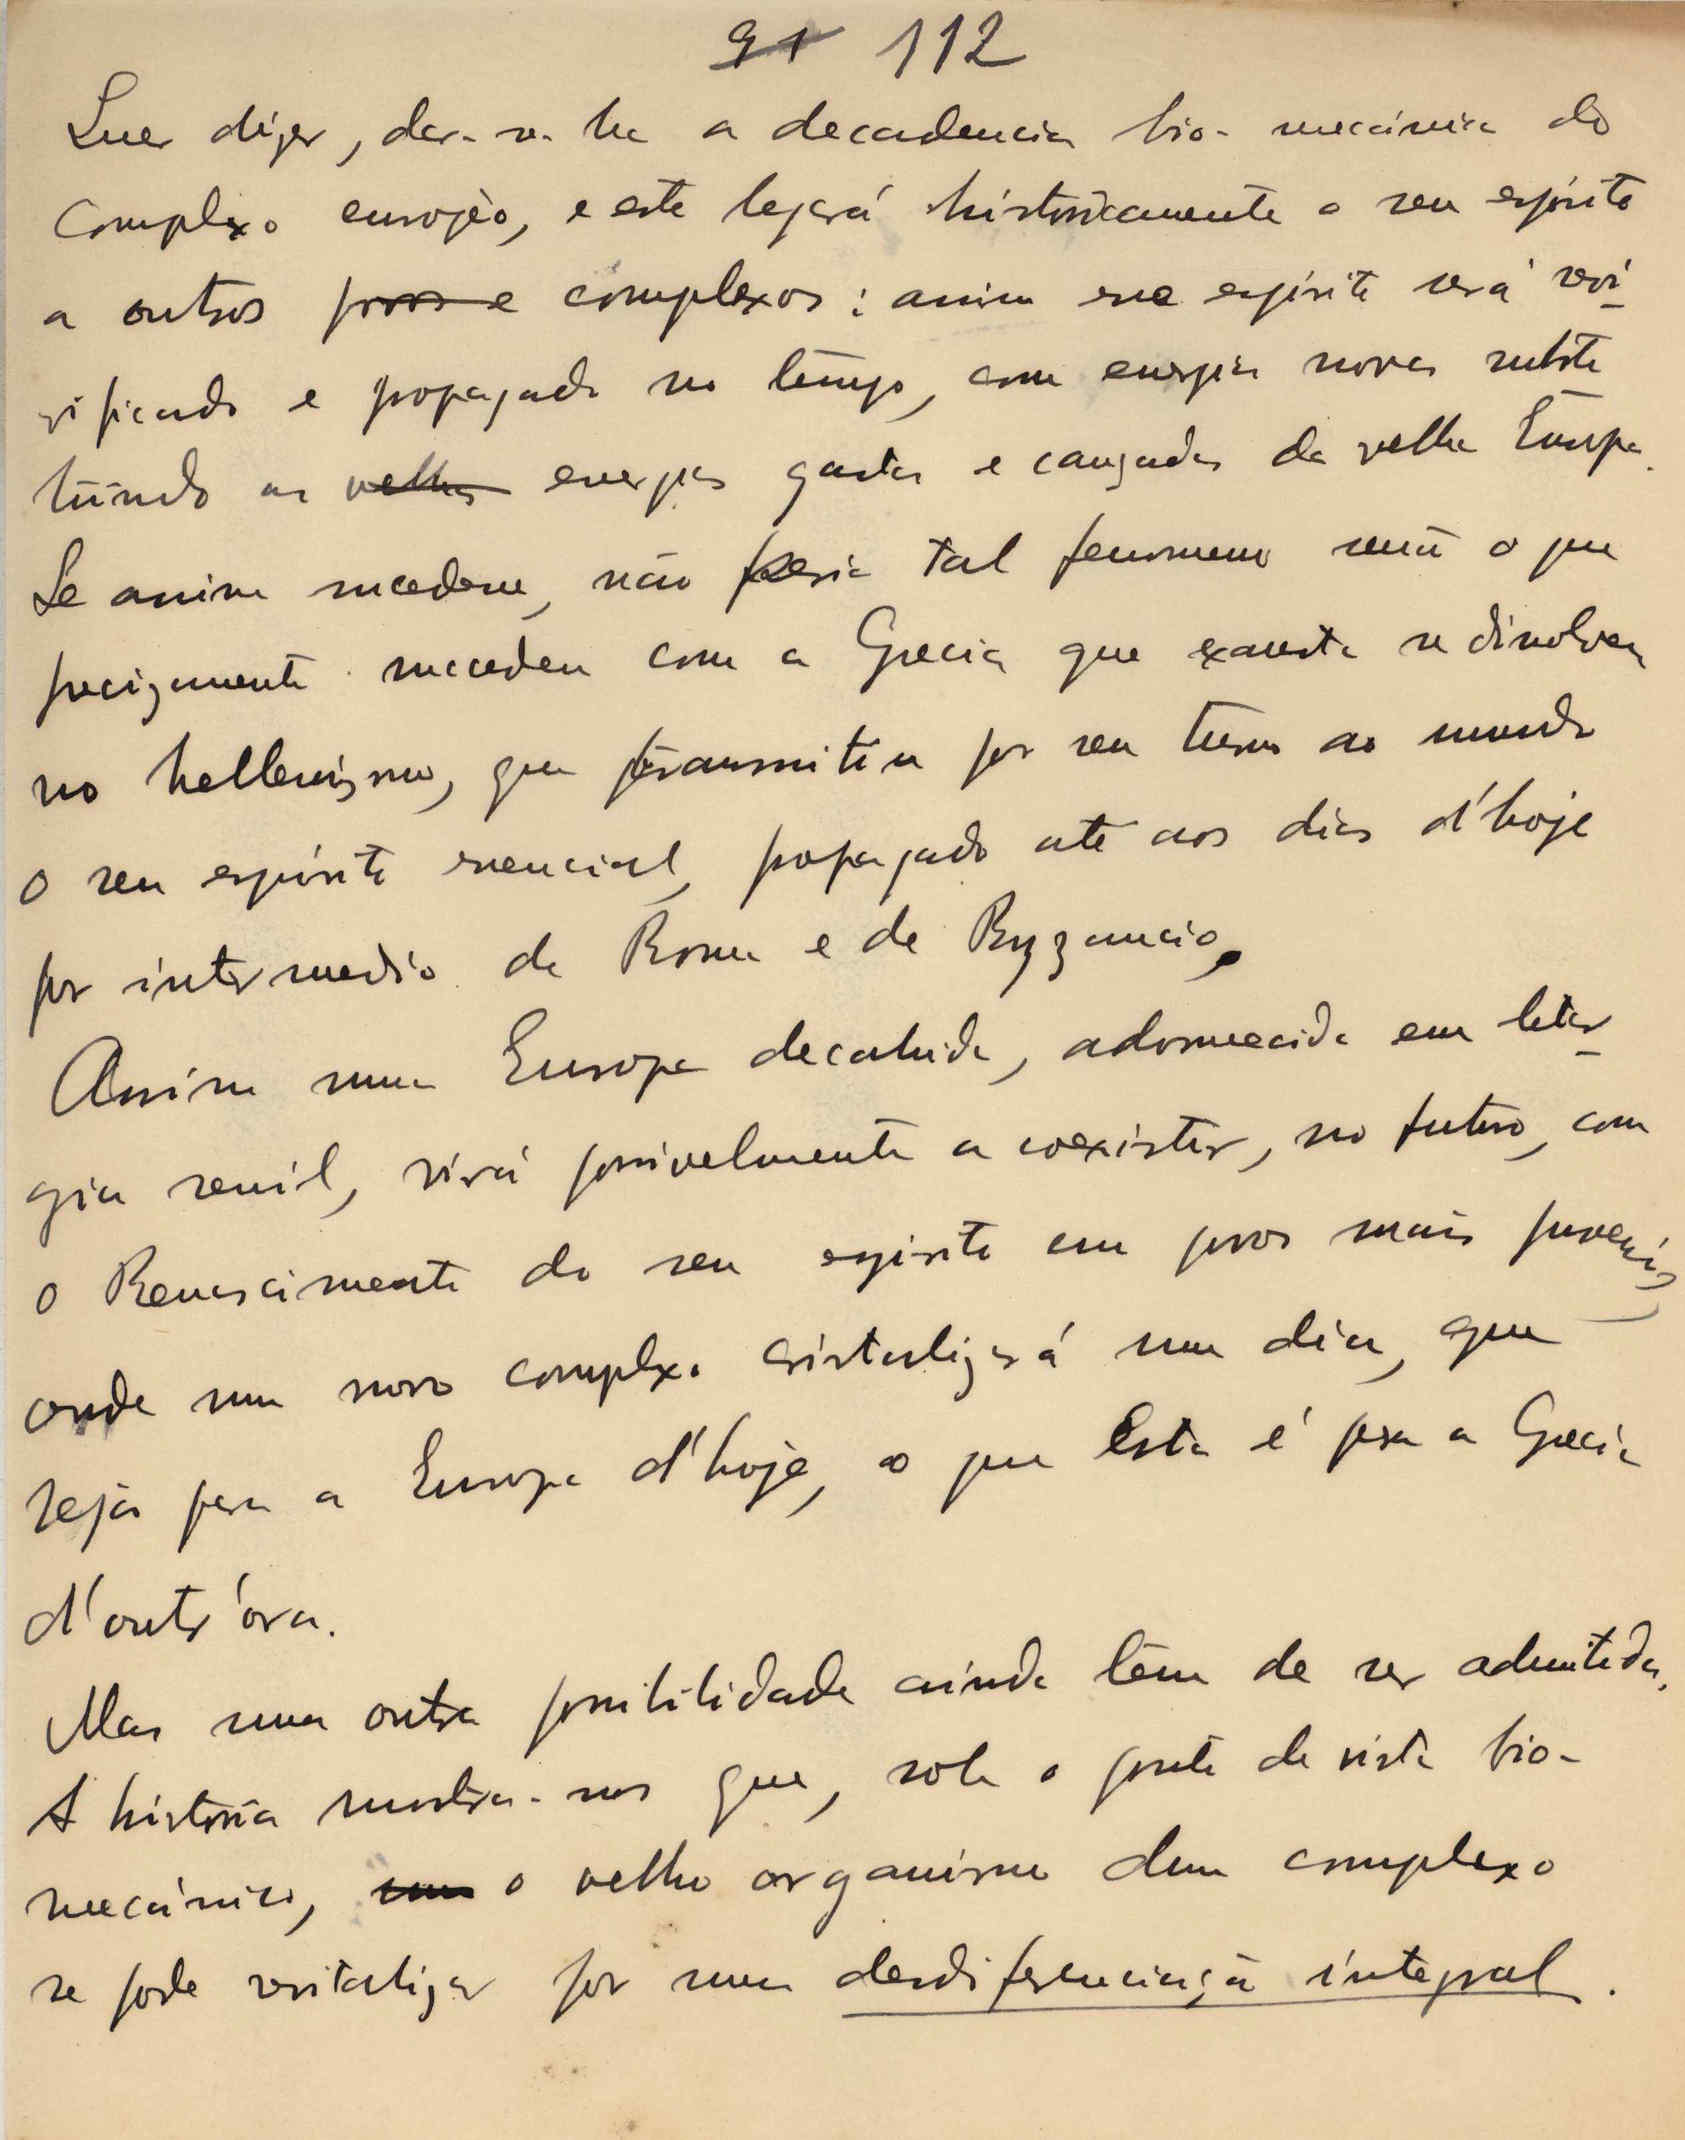 91 112
Quer dizer, dar-se-ha a decadencia bio-mecánica do
complexo européo, e este legará históricamente o seu espírito
a outros povos e complexos: assim esse espírito será revi-
vificado e propagado no tempo, com energias novas substi-
tuindo as velhas energias gastas e cançadas da velha Europa.
Se assim succedesse, não seria tal fenomeno senão o que
precizamente succedeu com a Grecia que exausta se dissolveu
no hellenizmo, que transmitiu por seu turno ao mundo
o seu espírito essencial, propagado até aos dias d'hoje
por intermedio de Roma e de Byzancio.
Assim uma Europa decahida, adormecida em letar-
gia senil, virá possivelmente a coexistir, no futuro, com
o Renascimento do seu espirito em povos mais juvenís,
onde um novo complexo cristalizará um dia, que
seja para a Europa d'hoje, o que esta é para a Grecia
d'outr'óra.
Mas uma outra possibilidade ainda têm de ser admitida.
A história mostra-nos que, sob o ponto de vista bio-
mecánico, um o velho organismo dum complexo
se pode revitalizar por uma desdiferenciação integral.